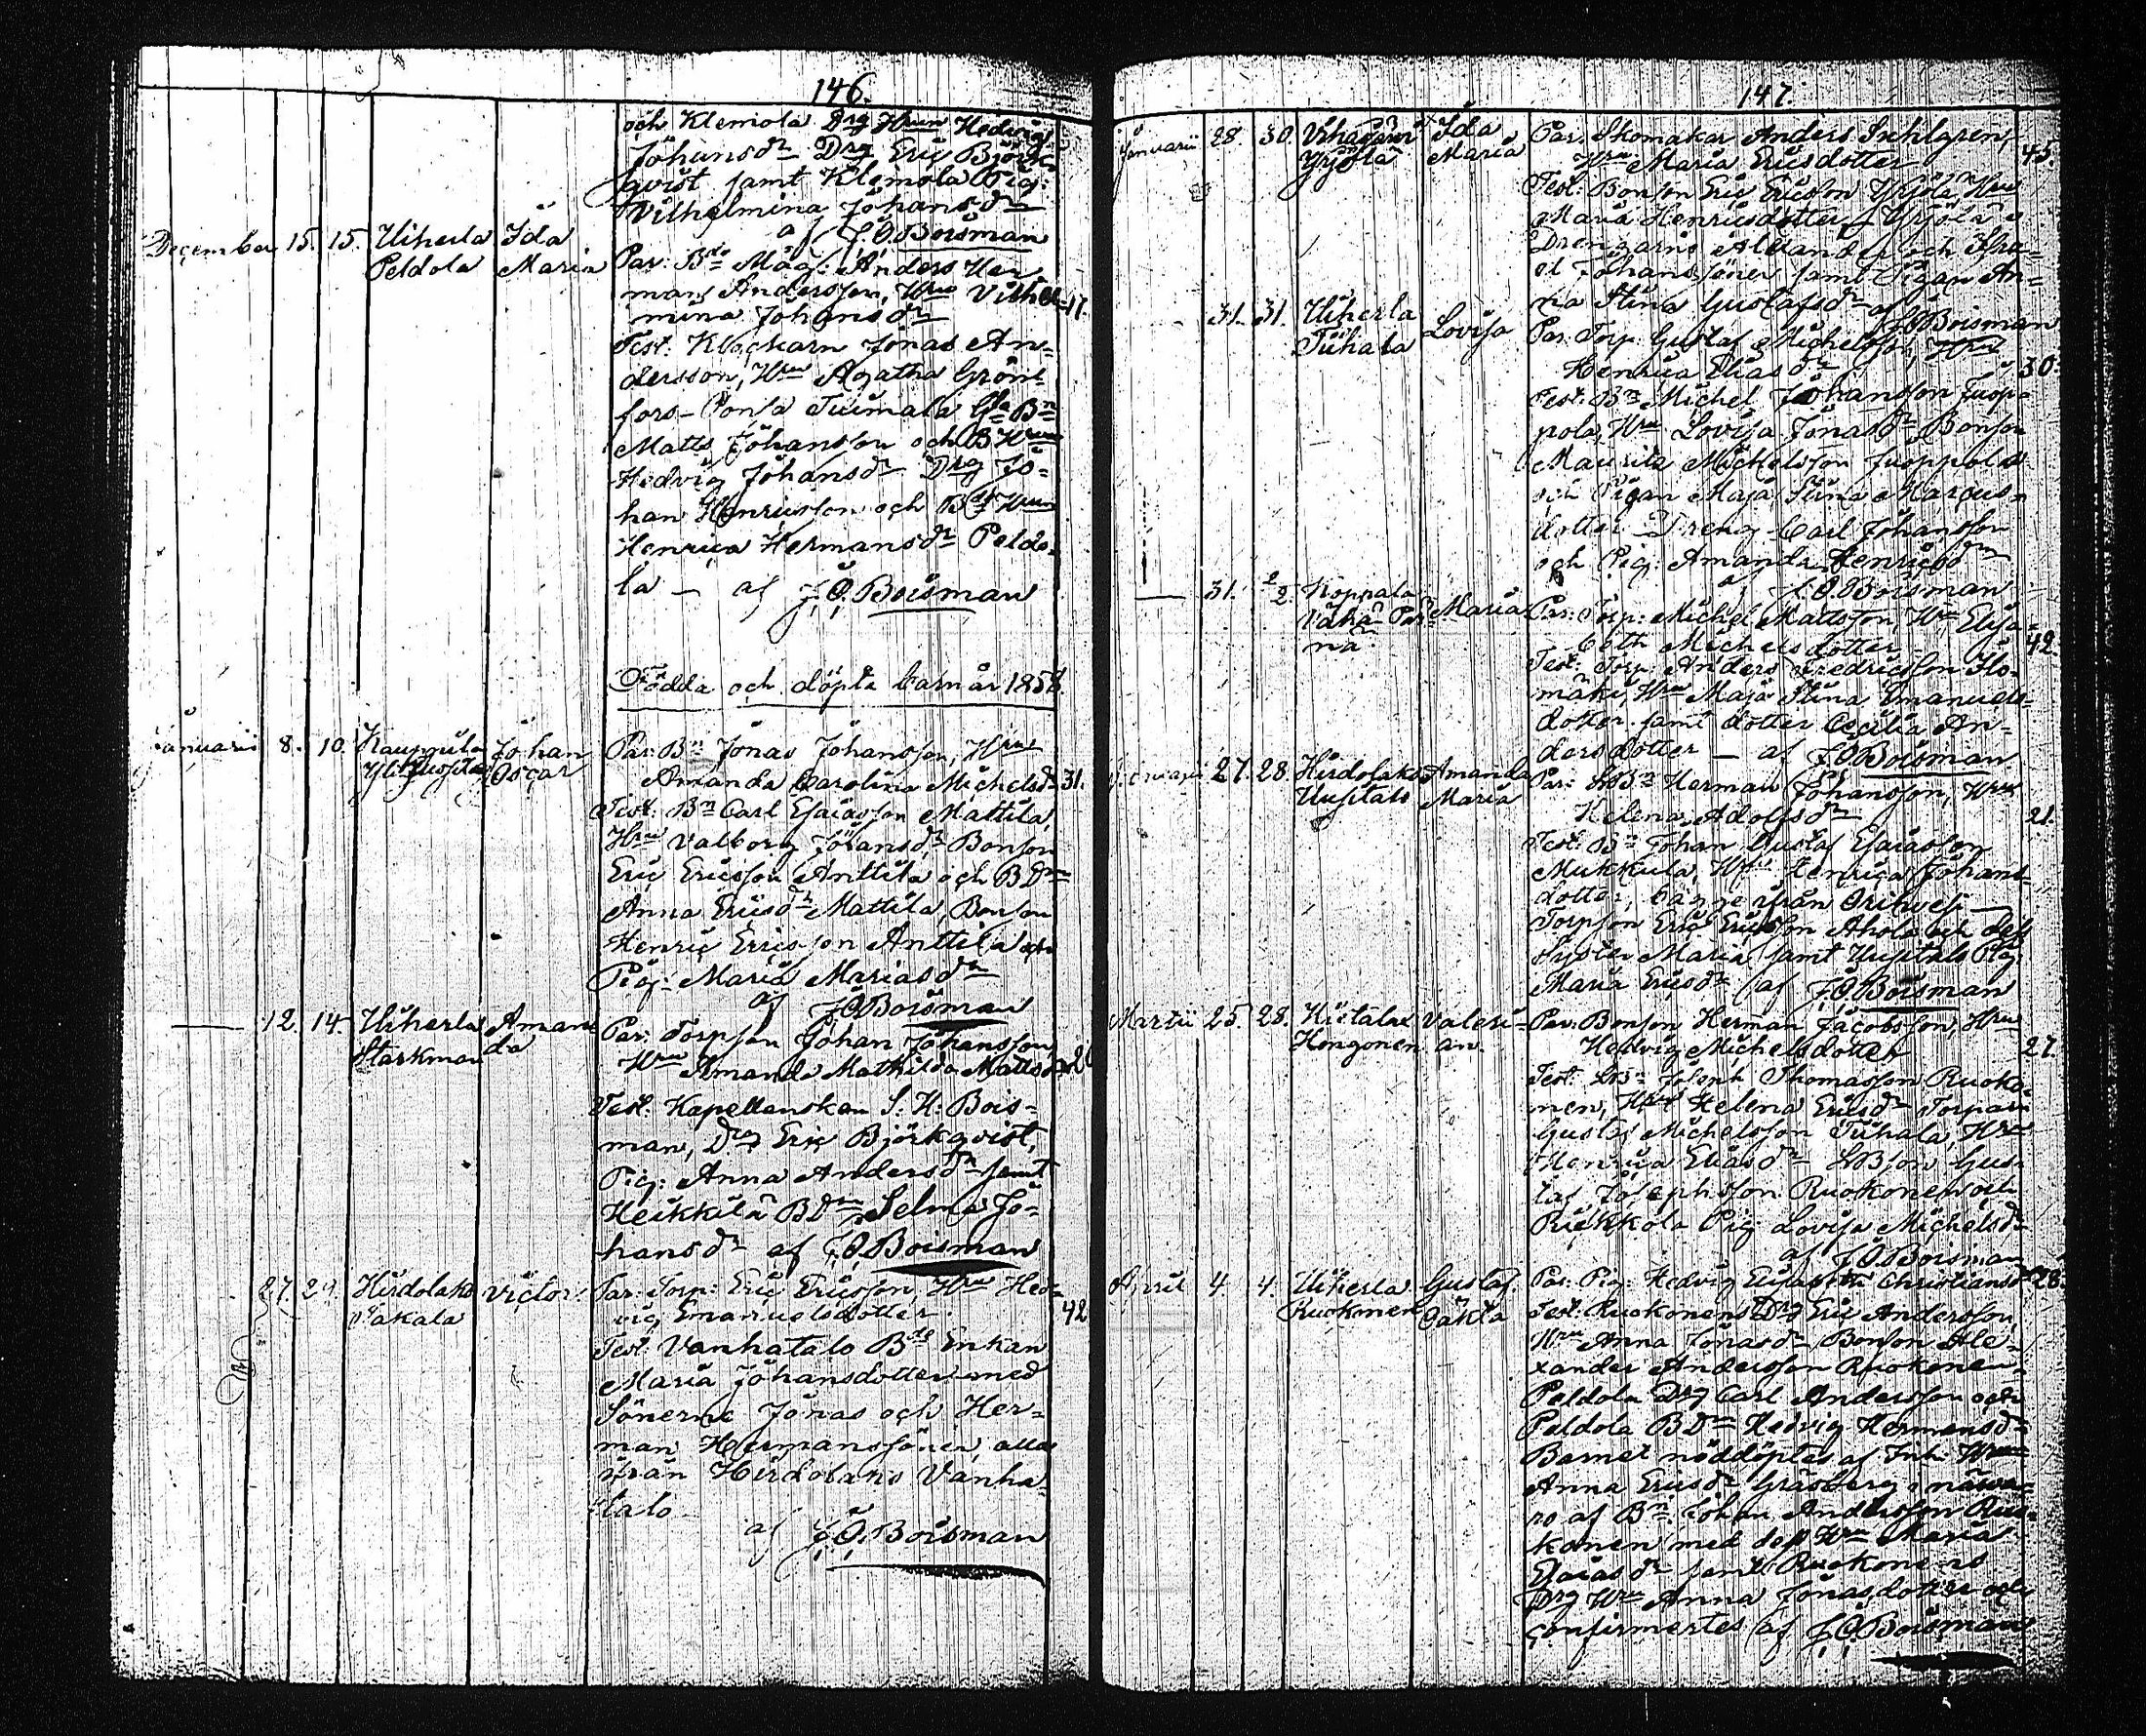 146.
och Klemola Drg Hrun Hedvig
Johansdr Drg Eric Björk=
qvist samt Klemola Pig:
Vilhelmina Johansdr
af J.O.Boisman
December 15. 15. Uiherla Ida Par: Bde Måg: Anders Her=
Peldola Maria man Andersson, Hru Vilhel= 17.
mina Johansdr
Test: Klockarn Jonas An=
dersson, Hru Agatha Grön=
fors
Matts Johansson och BHrun
Hedvig Johansdr Drg Jo=
han Henricsson och Bde Hrun
Henrica Hermansdr Peldo=
la — af J.O.Boisman
Födda och döpta barn år 1858.
Januarii 8. 10. Kaupgula Johan Par: Bn Jonas Johansson, Hru
Oscar Amanda Carolina Michelsdr 31.
Test: Bn Carl Esaiasson Mattila,
Hru Valborg Johansdr Bonson
Eric Ericsson Anttila och BDrn
Anna Ericsdr Mattila, Bonson
Henric Ericsson Anttila och
Pig: Maria Mariasdr
af J.O.Boisman
— 12. 14. Uiherla Aman Par: Torpson Johan Johansson,
Starkman da Hru Amanda Mathilda Mattsdr
Test: Kapellansken S. H. Bois=
man, Drg Eric Björkqvist,
Pig: Anna Andersdr samt
Heikkilä BDrn Selma Jo=
hansdr af J.O.Boisman
27. 29. Hirdolaks Victor. Par: Torp: Eric Ericsson, Hru Hed=
Vakala vig Emanuelsdotter. 42
Test: Vanhatalo Bde Enkan
Maria Johansdotter med
Sönerne Jonas och Her=
man Hermanssöner alla
ifrån Hirdolaks Vanha=
talo
af J.O.Boisman
147.
Januarii 28. 30. Ida Par. Skomakar Anders
Yrjölä Maria Hru Maria Ericsdotter 45.
Test: Bonson Eric Ericsson Yrjölä Hru
Maria Henricsdotter, Yrjölä
Drengarne Alexander och
Johanssöner samt Pigan An=
na Stina Gustafsdr af J.O.Boisman
31. 31. Uiherla Lovisa Par: Torp: Gustaf Michelsson, Hru
Tiihala Henrica Eliasdr 30.
Test: Bn Michel Johansson Juop=
pola, Hru Lovisa Jonasdr Bonson
Maurits Michelsson Juoppola
och Pigan Maja Stina Marcus=
dotter Dreng Carl Johansson
och Pig: Amanda Henricsdr
af J.O.Boisman
— 31. 2/2. Koppala Maria Par: Torp: Michel Mattsson, Hru Elisa=
Vähä Pär= beth Michelsdotter 42
nä. Test: Torp: Anders Fredricsson Ilo=
mäki, Hru Maja Stina Emanuels=
dotter samt dotter Cecilia An=
dersdotter — af J.O.Boisman
27. 28. Hirdolaks Amanda Par: Herman Johansson, Hru
Uusitalo Maria Helena Adolfsdr 21.
Test: Bn Johan Gustaf Esaiasson
Mukkula, Hru Henrica Johans=
dotter, bägge ifrån Orihvesi —
Torpson Eric Ericsson Ahola och dess
Syster Maria samt Uusitalo Pig:
Maria Ericsdr af J.O.Boisman
Martii 25. 28. Hietalax Valeri= Par: Bonson Herman Jacobsson, Hru
Hongonen. an. Hedvig Michelsdotter 27.
Test: Joseph Thomasson Ruoko=
nen, Hru Helena Ericsdr Torparn
Gustaf Michelsson Tiihala, Hru
Henrica Eliasdr Gus=
taf Josephsson Ruokonen och
Riekkola Pig: Lovisa Michelsdr
af J.O.Boisman
April 4. 4. Uiherla Gustaf Par: Pig: Hedvig Elisabeth Christiansdr 28.
Ruokonen Oäkta Test: Ruokonens Drg Eric Andersson,
Hru Anna Jonasdr Bonson Ale=
xander Andersson Ruokonen,
Peldola Drg Carl Andersson och
Peldola BDrn Hedvig Hermansdr
Barnet nöddöptes af Inh: Hrun
Anna Ericsdr Gräsberg i närva=
ro af Bn. Johan Andersson Ruo=
konen med dess Hru Maria
Esaiasdr samt Ruokonens
Drg Hru Anna Jonasdotter och
confirmertes af J.O.Boisman